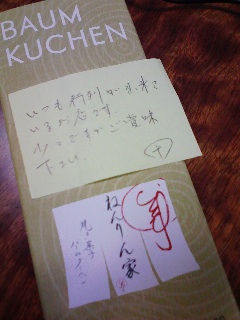 BAUM
KUCHEN
いつも行列が出来て
いるお店です。
少しですがご賞味
下さい。
ねんりん家